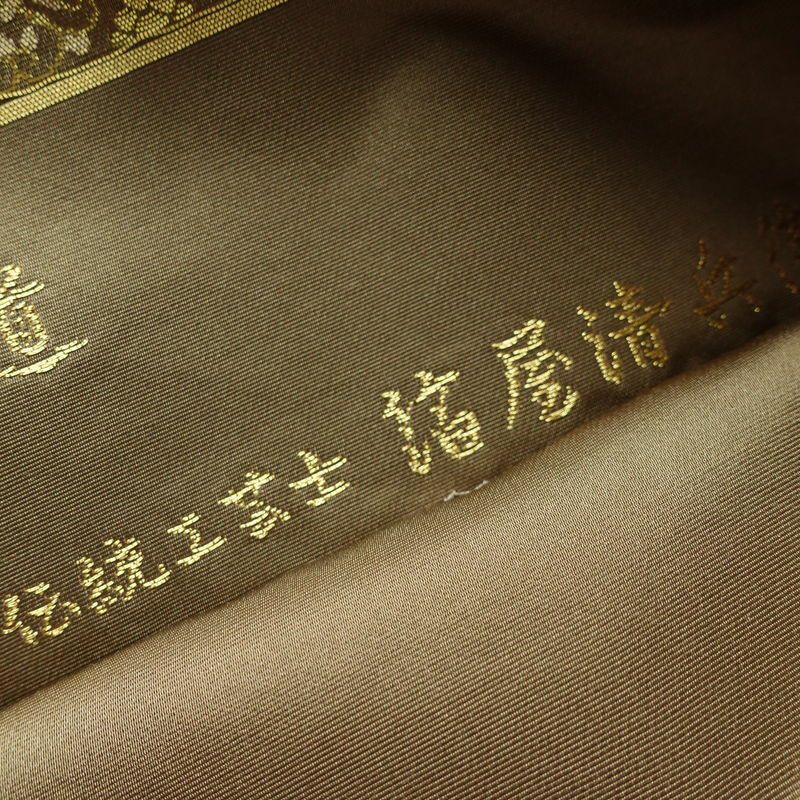 伝統工芸士 箔屋清兵